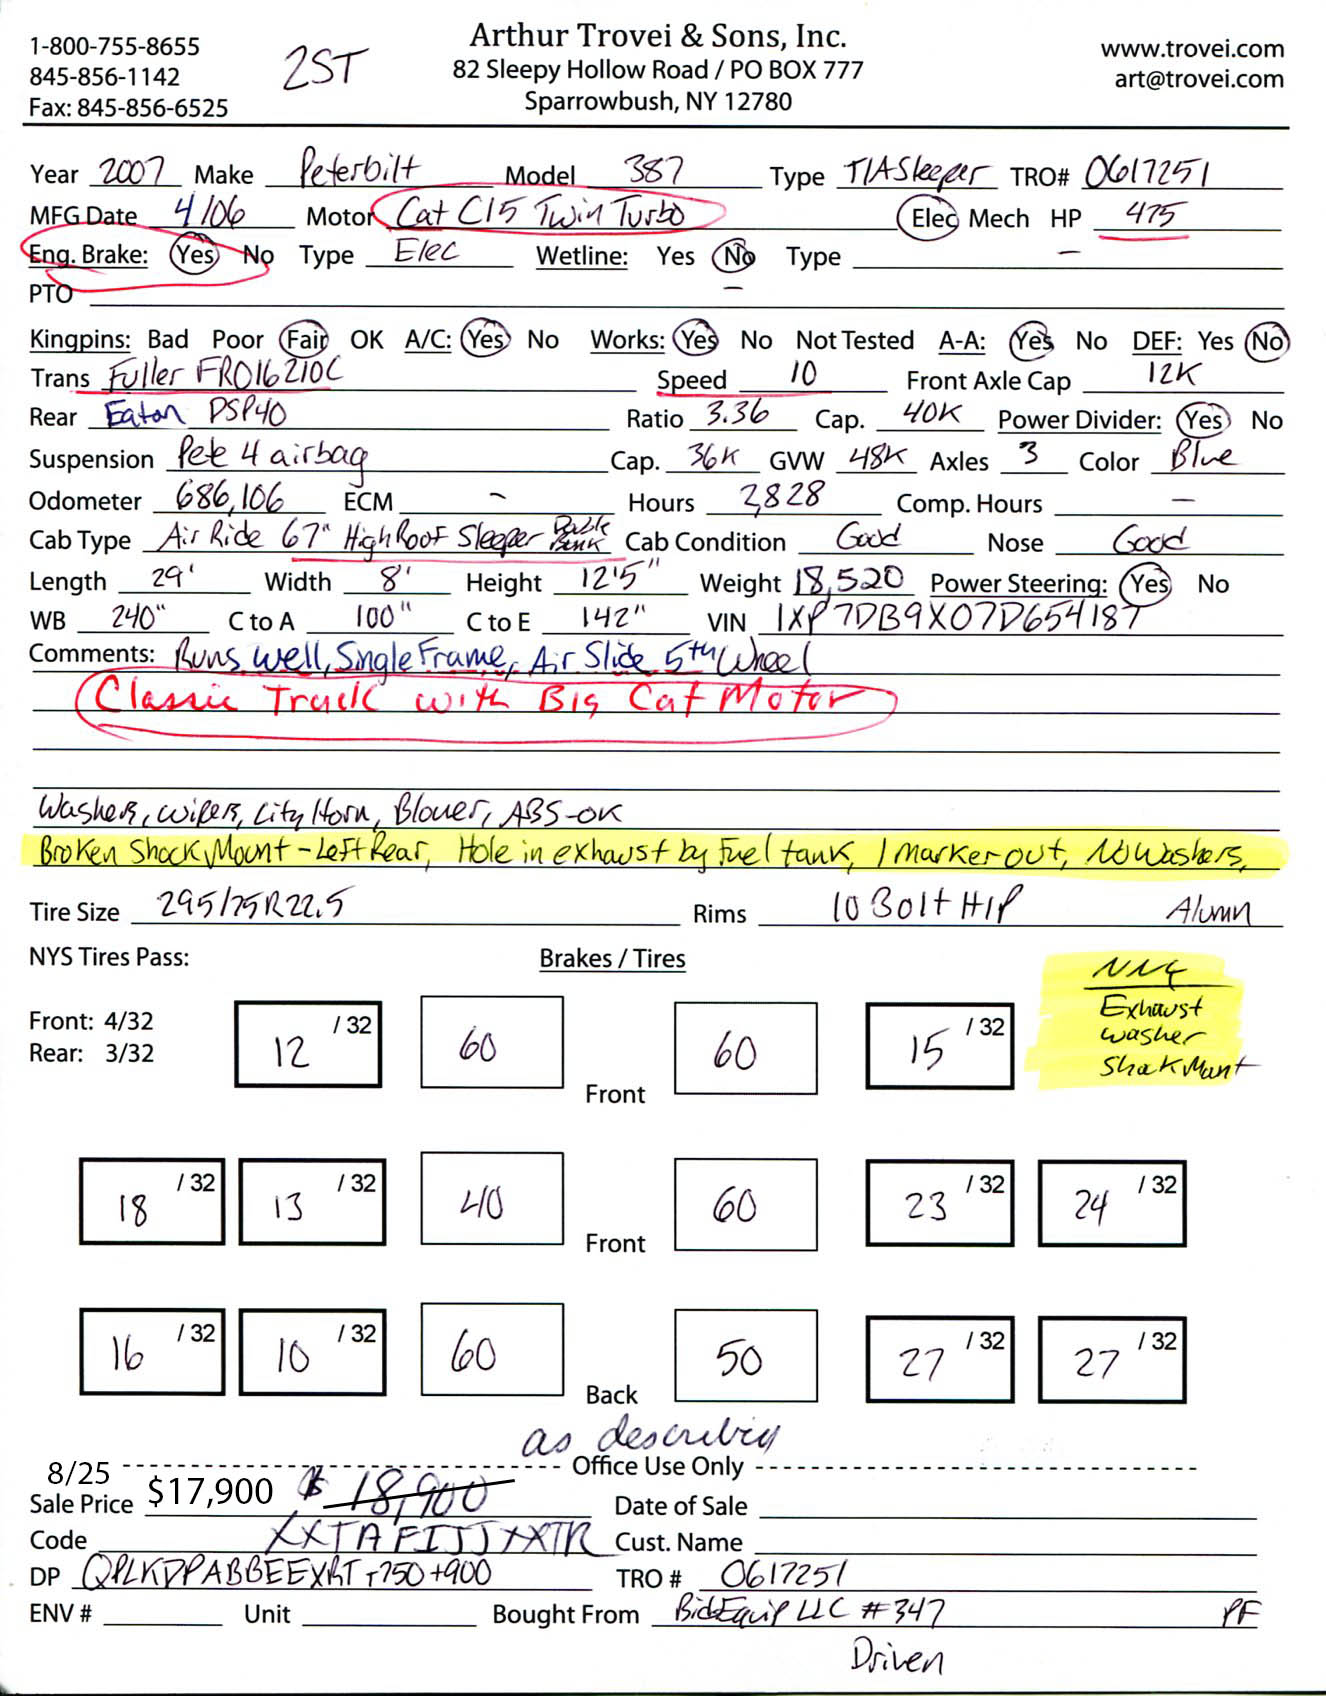 1-800-755-8655
845-856-1142
Fax: 845-856-6525
2ST
Arthur Trovei & Sons, Inc.
82 Sleepy Hollow Road / PO BOX 777
Sparrowbush, NY 12780
www.trovei.com
art@trovei.com
Year 2007 Make Peterbilt Model 387 Type T/A Sleeper TRO# 0617251
MFG Date 4/06 Motor Cat C15 Twin Turbo Elec Mech HP 475
Eng. Brake: Yes No Type Elec Wetline: Yes No Type —
PTO —
Kingpins: Bad Poor Fair OK A/C: Yes No Works: Yes No Not Tested A-A: Yes No DEF: Yes No
Trans Fuller FRO16210C Speed 10 Front Axle Cap 12K
Rear Eaton DSP40 Ratio 3.36 Cap. 40K Power Divider: Yes No
Suspension Pete 4 airbag Cap. 36K GVW 48K Axles 3 Color Blue
Odometer 686,106 ECM - Hours 2,828 Comp. Hours —
Cab Type Air Ride 67" High Roof Sleeper Double Bunk Cab Condition Good Nose Good
Length 29' Width 8' Height 12'5" Weight 18,520 Power Steering: Yes No
WB 240" C to A 100" C to E 142" VIN 1XP7DB9X07D654187
Comments: Runs well, Single Frame, Air Slide 5th Wheel
Classic Truck with Big Cat Motor
Washers, wipers, City Horn, Blower, ABS-OK
Broken Shock Mount - Left Rear, Hole in exhaust by Fuel tank, 1 Marker out, No Washers,
Tire Size 295/75R22.5 Rims 10 Bolt H/P Alumn
NYS Tires Pass: Brakes / Tires
Front: 4/32
Rear: 3/32
12 /32 60 Front 60 15 /32
Exhaust
washer
Shock Mount
18 /32 13 /32 40 Front 60 23 /32 24 /32
16 /32 10 /32 60 Back 50 27 /32 27 /32
as describing
Office Use Only
8/25
Sale Price $17,900 $ 18,900 Date of Sale
Code XXTAFIJJXXTR Cust. Name
DP QPLKDPABBEEXRT +750+900 TRO # 0617251
ENV # Unit Bought From BidEquip LLC #347 PF
Driven